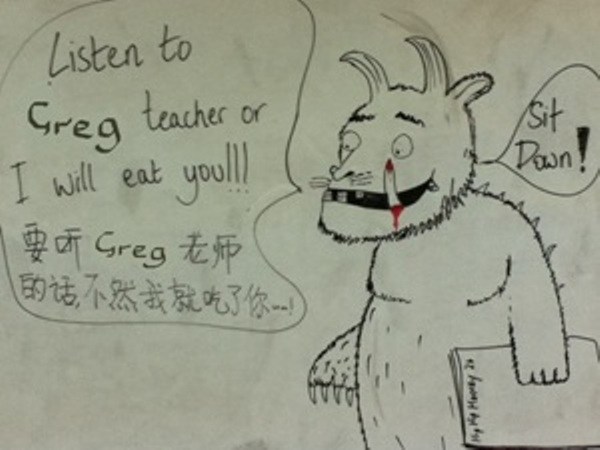 Listen to
Greg teacher or
I will eat you!!!
要听 Greg 老师
的话,不然我就吃了你---!
Sit
Down!
Hip Hip Hooray 2a